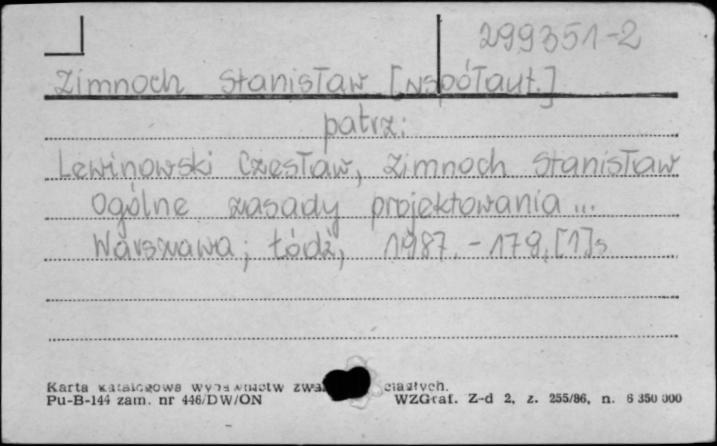 299351-2
Zimnoch Stanisław [współaut.]
patrz:
Lewinowski Czesław, Zimnoch Stanisław
Ogólne zasady projektowania...
Warszawa; Łódź, 1987. - 179, [1] s
Karta katalogowa wydawnictw
Pu-B-144 zam. nr 446/DW/ON WZGraf. Z-d 2, z. 255/86, n. 6 350 000